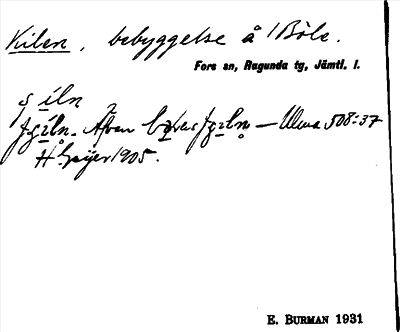 Kilen, bebyggelse å Böle.
Fors sn, Ragunda tg, Jämtl. l.
s íln
Även
Ulma 508:37
H Geijer 1905.
E. BURMAN 1931